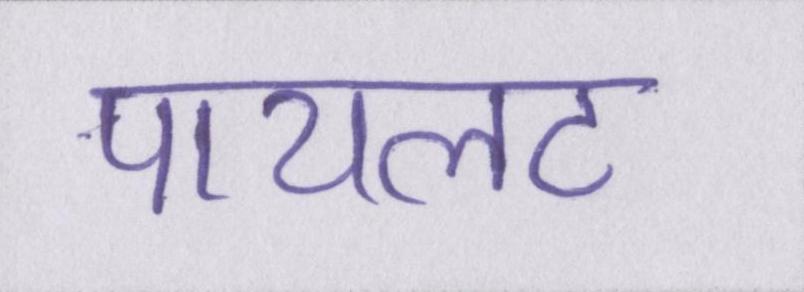 पायलट